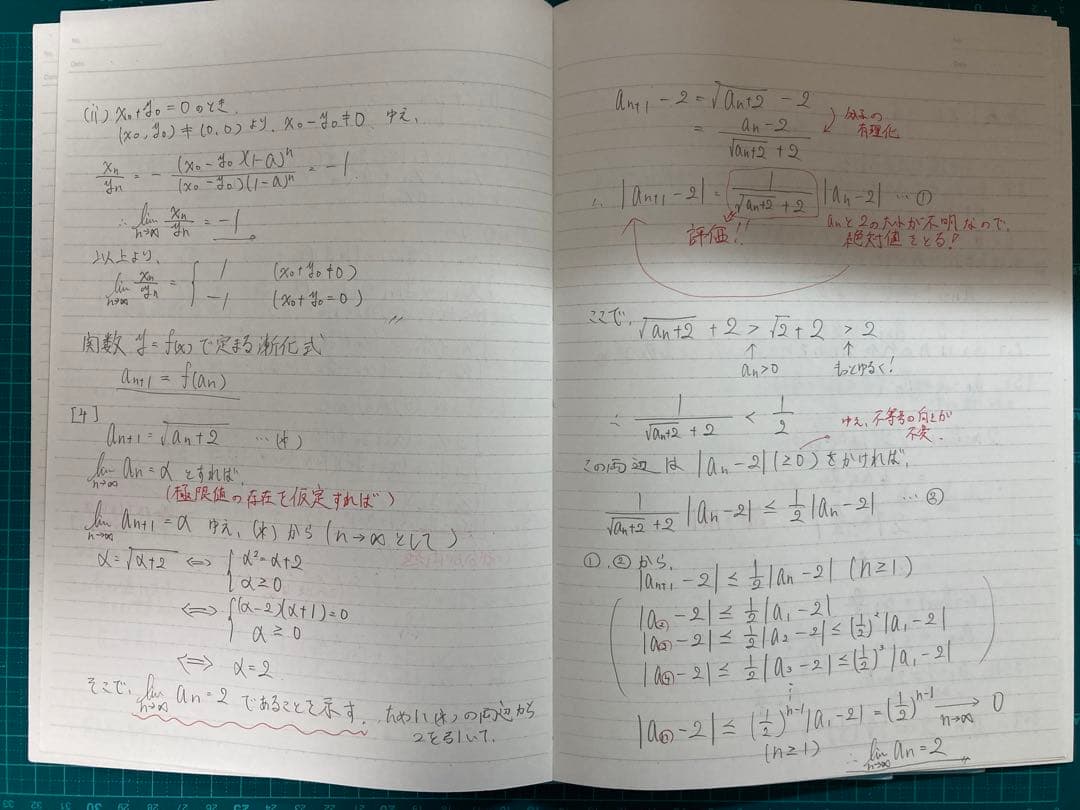 (ii) x₀+y₀=0のとき
(x₀, y₀)≠(0,0)より、x₀-y₀≠0 ゆえ、
xₙ/yₙ = - (x₀-y₀)(1-a)ⁿ/(x₀-y₀)(1-a)ⁿ = -1
∴ lim_{n→∞} xₙ/yₙ = -1
以上より、
lim_{n→∞} xₙ/yₙ = { 1 (x₀+y₀≠0)
-1 (x₀+y₀=0)
関数 y=f(x)で定まる漸化式
aₙ₊₁ = f(aₙ)
[4]
aₙ₊₁ = √(aₙ+2) …(*)
lim_{n→∞} aₙ = α とすれば、
(極限値の存在を仮定すれば)
lim_{n→∞} aₙ₊₁ = α ゆえ、(*)から (n→∞として)
α=√(α+2) ⇔ { α²=α+2
α≥0
⇔ { (α-2)(α+1)=0
α≥0
⇔ α=2
そこで、lim_{n→∞} aₙ=2 であることを示す。ために(*)の両辺から
2を引いて、
aₙ₊₁-2 = √(aₙ+2) - 2
= (aₙ-2)/(√(aₙ+2)+2)
分子の
有理化
∴ |aₙ₊₁-2| = 1/(√(aₙ+2)+2) |aₙ-2| …①
評価!!
aₙと2の大小が不明なので、
絶対値をとる!
ここで、√(aₙ+2)+2 > √2+2 > 2
↑ ↑
aₙ>0 もっとゆるく!
∴ 1/(√(aₙ+2)+2) < 1/2
ゆえ、不等号の向きが
不変.
この両辺は |aₙ-2|(≥0)をかければ、
1/(√(aₙ+2)+2) |aₙ-2| ≤ 1/2|aₙ-2| …③
①,②から、
|aₙ₊₁-2| ≤ 1/2|aₙ-2| (n≥1)
|a②-2| ≤ 1/2|a₁-2|
|a③-2| ≤ 1/2|a₂-2| ≤ (1/2)²|a₁-2|
|a④-2| ≤ 1/2|a₃-2| ≤ (1/2)³|a₁-2|
⋮
|aⓝ-2| ≤ (1/2)ⁿ⁻¹|a₁-2| = (1/2)ⁿ⁻¹ →_{n→∞} 0
(n≥1)
∴ lim_{n→∞} aₙ=2